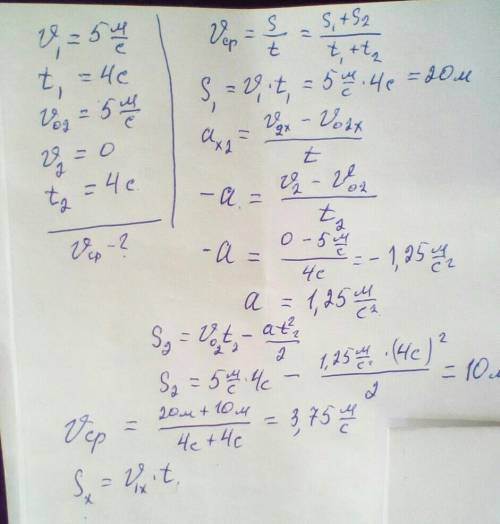 v₁ = 5 м/с
t₁ = 4с
v₀₂ = 5 м/с
v₂ = 0
t₂ = 4с
vср - ?
vср = S/t = (S₁+S₂)/(t₁+t₂)
S₁ = v₁·t₁ = 5 м/с · 4с = 20м
aₓ₂ = (v₂ₓ - v₀₂ₓ)/t
-a = (v₂ - v₀₂)/t₂
-a = (0 - 5 м/с)/4с = -1,25 м/с²
a = 1,25 м/с²
S₂ = v₀₂t₂ - at₂²/2
S₂ = 5 м/с · 4с - (1,25 м/с² · (4с)²)/2 = 10м
vср = (20м + 10м)/(4с + 4с) = 3,75 м/с
Sₓ = v₁ₓ · t.